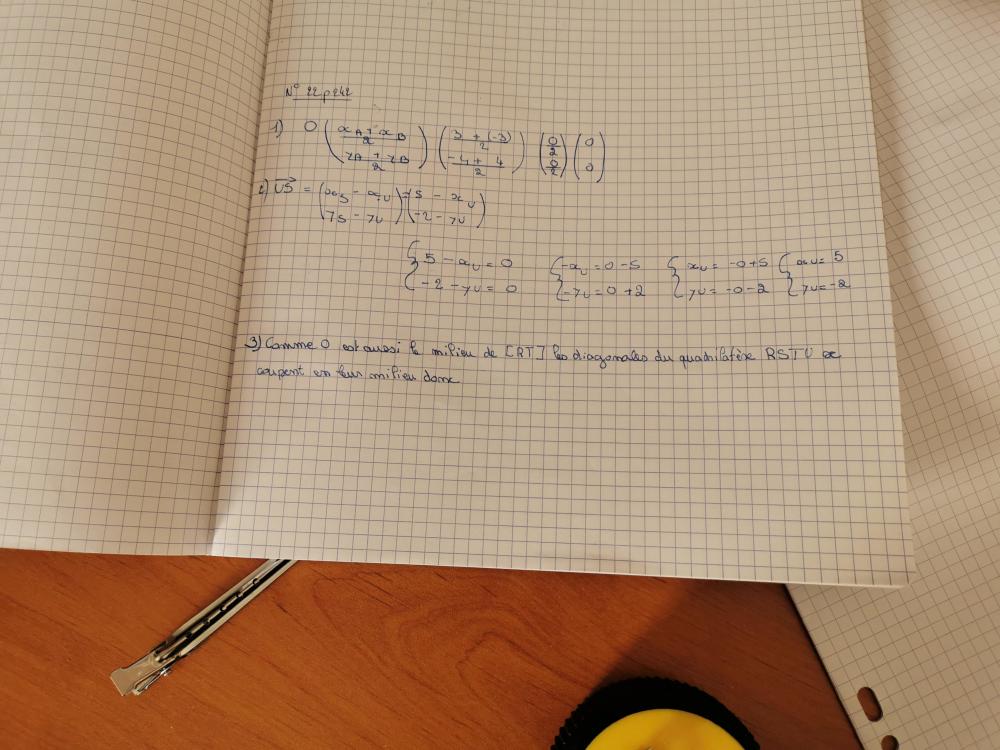 N° 22 p 242
1) O ( (xA + xB)/2 ; (yA + yB)/2 ) ( (3 + (-3))/2 ; (-4 + 4)/2 ) ( 0/2 ; 0/2 ) ( 0 ; 0 )
2) US⃗ = ( xS - xU ; yS - yU ) = ( 5 - xU ; -2 - yU )
{ 5 - xU = 0 { -xU = 0 - 5 { xU = -0 + 5 { xU = 5
{ -2 - yU = 0 { -yU = 0 + 2 { yU = -0 - 2 { yU = -2
3) Comme O est aussi le milieu de [RT] les diagonales du quadrilatère RSTU se
coupent en leur milieu donc